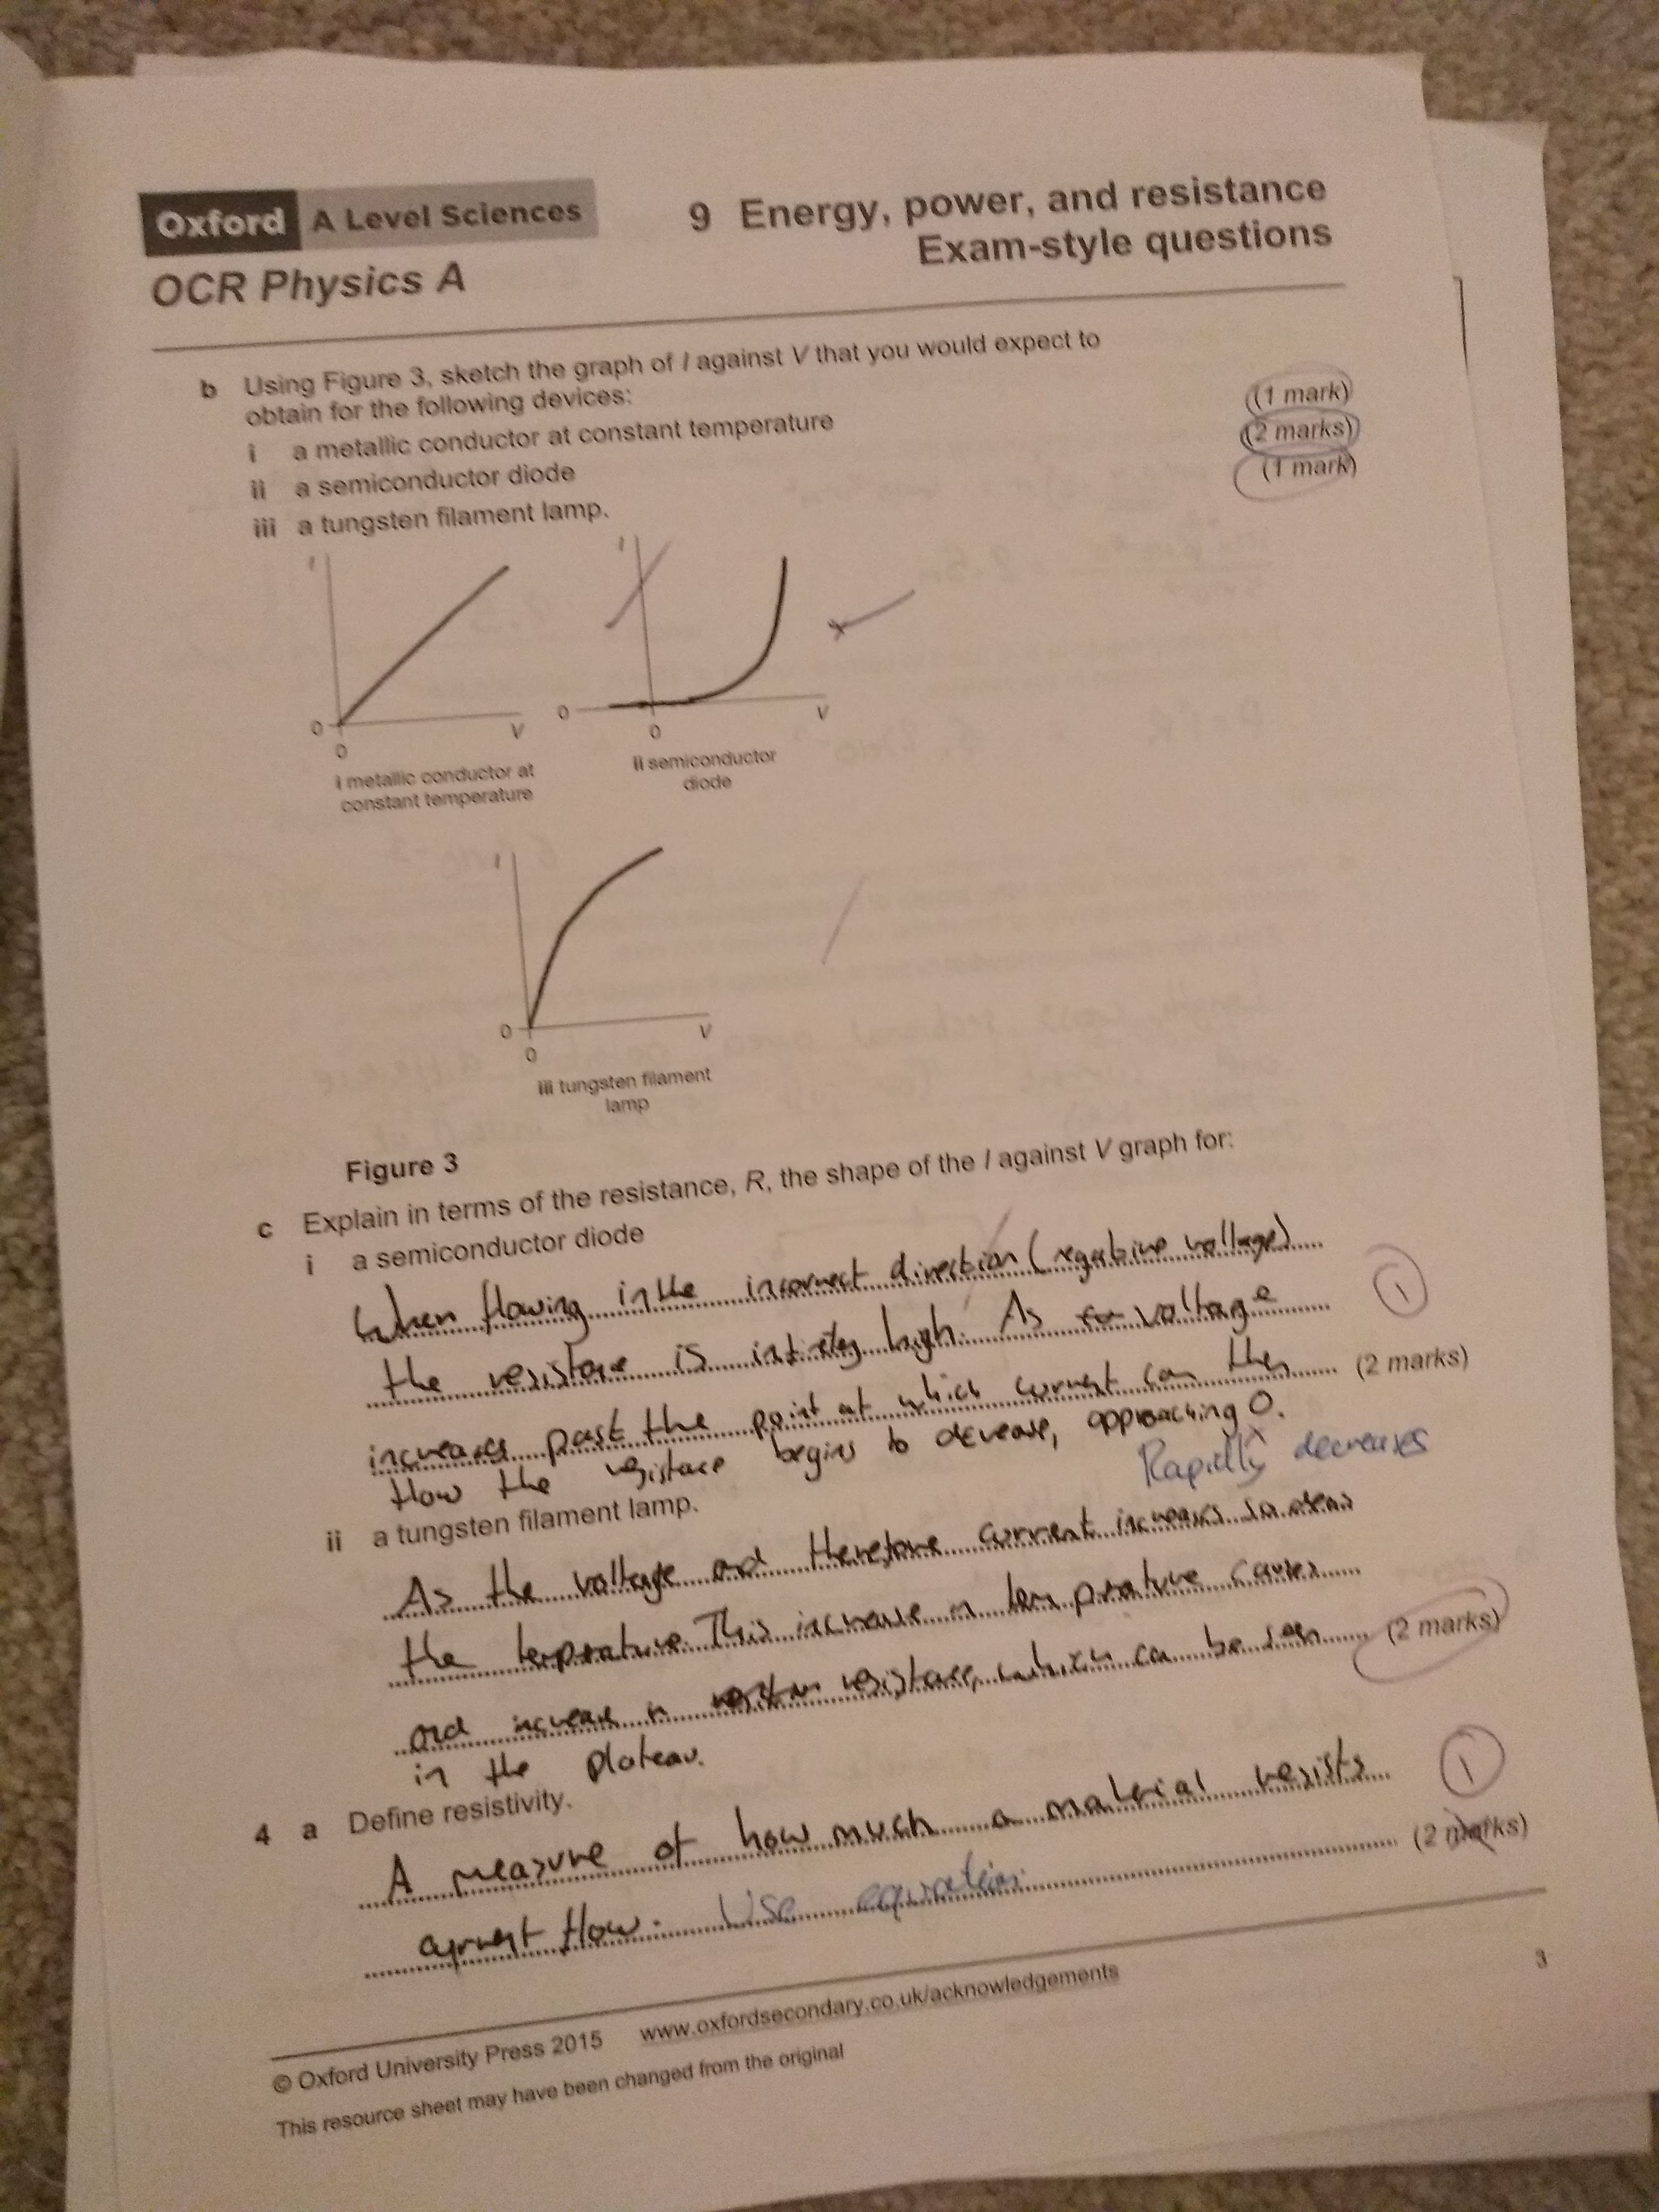 Oxford A Level Sciences
OCR Physics A
9 Energy, power, and resistance
Exam-style questions
b Using Figure 3, sketch the graph of I against V that you would expect to
obtain for the following devices:
i a metallic conductor at constant temperature (1 mark)
ii a semiconductor diode (2 marks)
iii a tungsten filament lamp. (1 mark)
I
0
0
V
i metallic conductor at
constant temperature
I
0
0
V
ii semiconductor
diode
I
0
0
V
iii tungsten filament
lamp
Figure 3
c Explain in terms of the resistance, R, the shape of the I against V graph for:
i a semiconductor diode
When flowing in the incorrect direction (negative voltage)
the resistance is high. As voltage
1
increases past the point at which current can then (2 marks)
flow the resistance begins to decrease, approaching 0.
Rapidly decreases
ii a tungsten filament lamp.
As the voltage and therefore current increases so does
the temperature. This increase in temperature causes
and increase in resistance, which can be seen (2 marks)
in the plateau.
4 a Define resistivity.
A measure of how much a material resists
1
current flow. Use equation. (2 marks)
3
© Oxford University Press 2015 www.oxfordsecondary.co.uk/acknowledgements
This resource sheet may have been changed from the original